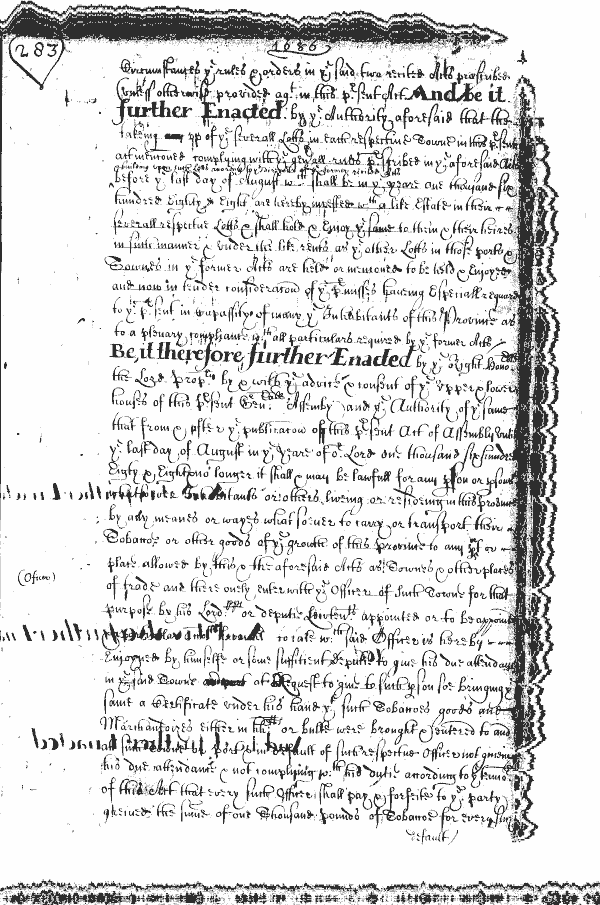 283
1686
Circumstances yͤ rules & orders in yͤ said two recited Acts prescribed
unless otherwise provided agᵗ in this pʳsent Act And be it
further Enacted by yͤ Authority aforesaid that the
taking up of yͤ severall Lotts in each respective Towne in this pʳsent
Act mentioned complying with yͤ genʳall rules pʳscribed in yͤ aforesaid Acts
before yͤ last day of August wᶜʰ shall be in yͤ yeare one thousand six
hundred Eighty & Eight are hereby invested wᵗʰ a like Estate in their
severall respective Lotts & shall hold & Enjoy yͤ same to them & their heires
in such manner & under the like rents as yͤ other Lotts in those ports &
Townes in yͤ former Acts are held or mentioned to be held & Enjoyed
and now in tender consideracon of yͤ pʳmisses haveing Especiall regard
to yͤ pʳsent incapassity of many yͤ Inhabitants of this Province as
to a plenary compliance wᵗʰ all particulars required by yͤ former Acts
Be it therefore further Enacted by yͤ Right Honoᵇˡᵉ
the Lord Propʳʸ by & with yͤ advice & consent of yͤ upper & lower
houses of this pʳsent Genˡˡ Assembly and yͤ Authority of yͤ same
that from & after yͤ publicacon of this pʳsent Act of Assembly until
yͤ last day of August in yͤ Yeare of oʳ Lord one thousand six hundred
Eighty & Eight no longer it shall & may be lawfull for any pson or psons
Inhabitants or others liveing or resideing in this province
by any meanes or wayes whatsoever to carry or transport their
Tobaccoe or other goods of yͤ growth of this Province to any pᵗ or
place allowed by this & the aforesaid Acts as Townes & other places
of trade and there onely enter with yͤ Officer of such Towne for that
(Officer)
purpose by his Lordᵖᵖ or deputie Lieutenᵗˢ appointed or to be appointed
to take wᶜʰ said Officer is hereby
Enjoyned by himselfe or some sufficient deputie to give his due attendance
in yͤ said Towne at Request to give to such pson soe bringing yͤ
same a Certificate under his hand yͤ such Tobaccoes goods and
Marchandizes either in hhᵈˢ or bulke were brought & entered to and
att such towne or port & in default of such respective Officer not giveing
his due attendance & not complying wᵗʰ his dutie according to yͤ tenor
of this Act that every such Officer shall pay & forfeite to yͤ party
grieved the sume of one thousand pounds of Tobaccoe for every such
default